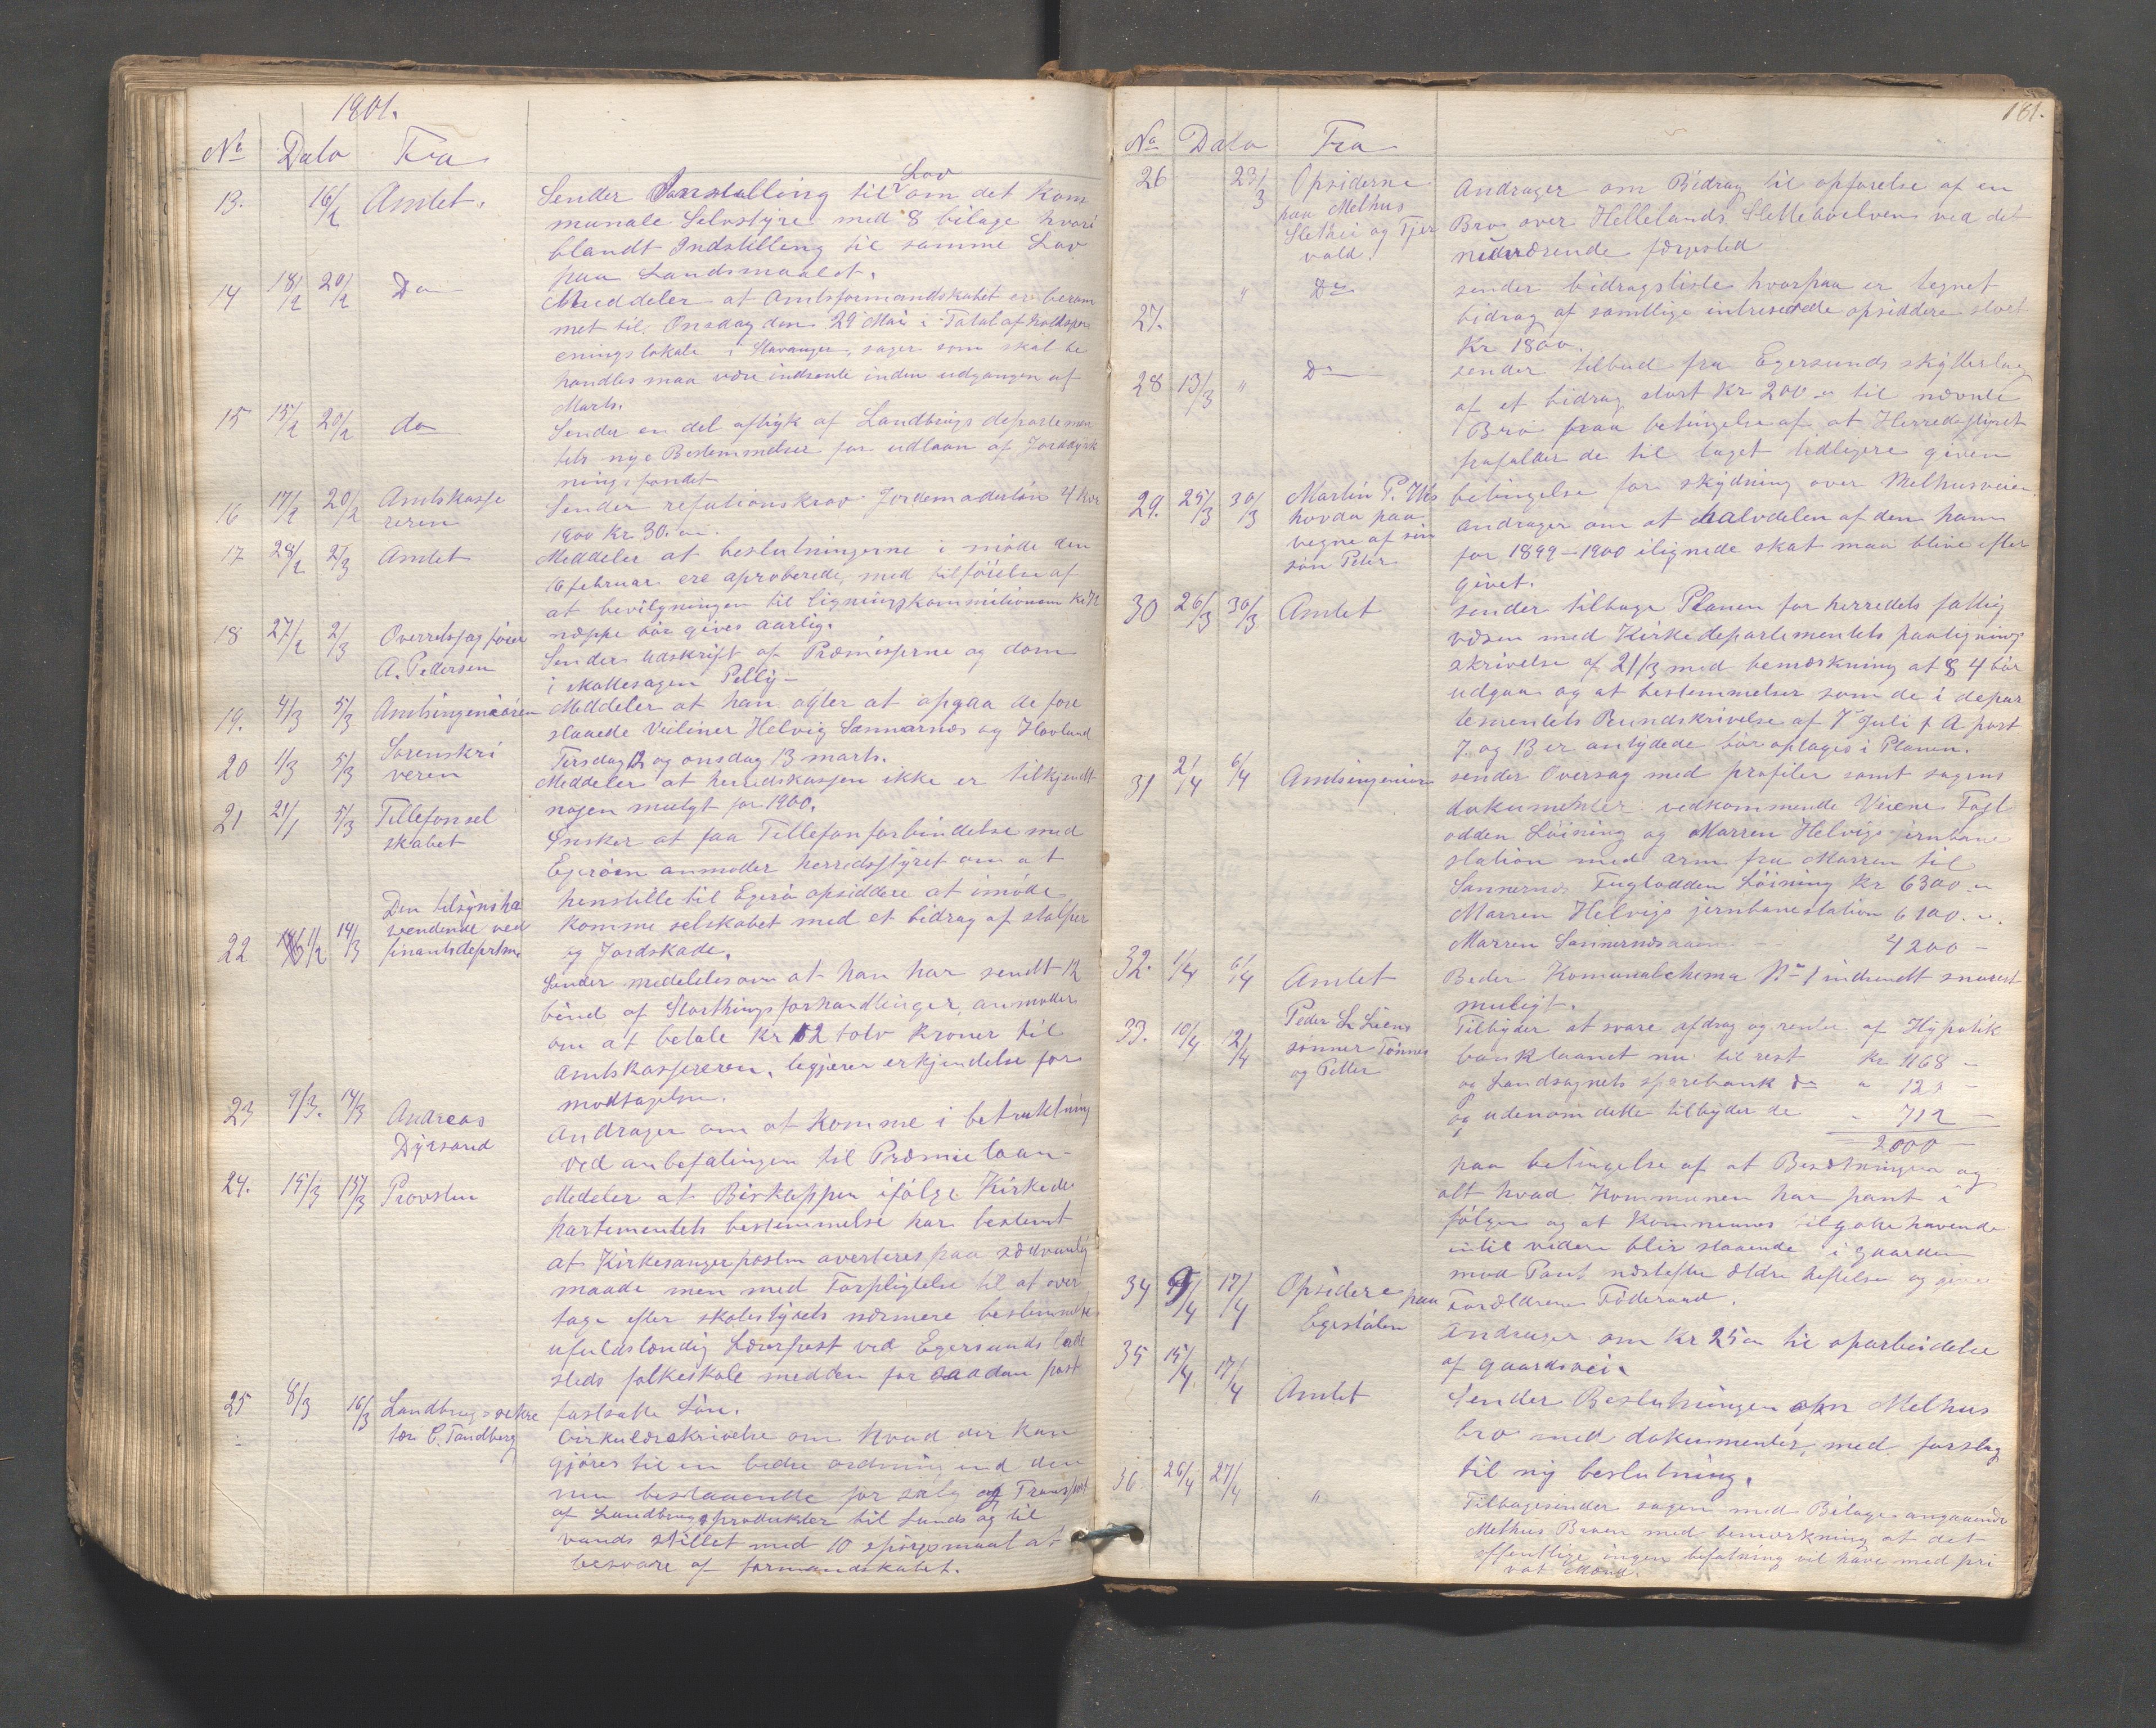 1901.
No Dato Fra
13. 16/2 Amtet. Sender Innstilling til Lov om det Kom
munale Selvstyre med 8 bilage hvori
blandt Indstilling til samme Lov
paa Landsmaalet.
14 18/2 20/2 Do Meddeler at Amtsformandskabet er beram
met til Onsdag den 29 Mai i Totalafholdsfor
eningslokale i Stavanger, sager som skal be
handles maa være indsente inden udgangen af
Marts.
15 15/2 20/2 do Sender en del aftryk af Landbrugs departemen
tets nye Bestemmelser for udlaan af Jorddyrk
ningsfondet
16 17/2 20/2 Amtskasse
reren Sender refutionskrav Jordemoderløn 4 Kv
1900 Kr 30.
17 28/2 2/3 Amtet Meddeler at beslutningerne i møde den
16 februar ere aproberede, med tilföielse af
at bevilgningen til ligningskommitionen Kr 72
næppe bör gives aarlig.
18 27/2 2/3 Overretssagförer
A. Pedersen Sender Udskrift af Præmisserne og dom
i Skattesagen Pelly-
19. 4/3 5/3 Amtsingeniören Meddeler at han agter at opgaa de fore
slaaede Veiliner Helvig Sannarnes og Hovland
Tirsdag 12 og onsdag 13 marts.
20 1/3 5/3 Sorenskri
veren Meddeler at herredskassen ikke er tilkjendt
nogen mulgt for 1900.
21 21/1 5/3 Tellefonsel
skabet Ønsker at faa Tellefonforbindelse med
Egeröen anmoder herredsstyret om at
henstille til Egerö opsiddere at imöde
komme selskabet med et bidrag af stolper
og Jordskade.
22 1/2 14/3 Den tilsynsha
vendende ved
finantsdepartm. Sender meddelelse om at han har sendt 12
bind af Storthingsforhandlinger, anmoder
om at betale Kr 12 tolv Kroner til
Amtskassereren, begjærer erkjendelse for
modtagelsen.
23 9/3. 14/3 Andreas
Dyrsand Andrager om at komme i betraktning
ved anbefalingen til Præmielaan-
24. 15/3 15/3 Provsten Medeler at Biskoppen ifölge Kirkede
partementets bestemmelse har bestemt
at Kirkesangerposten averteres paa sædvanlig
maade men med Forpligtelse til at over
tage efter skolestyrets nærmere bestemmelse
ufuldstændig Lærerpost ved Egersunds lande
steds folkeskole med den for saadan post
fastsatte Lön.
25 8/3 16/3 Landbrugssekre
tær C. Tandberg Cirkulærskrivelse om hvad der kan
gjöres til en bedre ordning end den
nu bestaaende for salg og Transport
af Landbrugsprodukter til Lands og til
vands stillet med 10 spörgsmaal at
besvare af formandskabet.
181.
No Dato Fra
26 23/3 Opsiderne
paa Melhus
Slethei og Tjer
vold. Andrager om Bidrag til opförelse af en
Bro over Hellelands Sletteboelven ved det
nuværende færgested
27. " Do sender bidragsliste hvorpaa er tegnet
bidrag af samtlige intreserede opsiddere stort
Kr 1800.
28 13/3 " Do sender tilbud fra Egersunds skytterlag
af et bidrag stort Kr 200 til nævnte
Bro paa betingelse af at Herredsstyret
frafalder de til laget tidligere given
betingelse for skydning over Melhusveien
29. 25/3 30/3 Martin P.
hovda paa
vegne af sin
sön Peter andrager om at halvdelen af den ham
for 1899-1900 ilignede skat maa blive efter
givet.
30 26/3 30/3 Amtet sender tilbage Planen for herredets fattig
væsen med Kirkedepartementets paategnings
skrivelse af 21/3 med bemærkning at § 4 bör
udgaa og at bestemmelser som de i depar
tementets Rundskrivelse af 7 Juli f A post
7. og 13 er antydede bör optages i Planen.
31 2/4 6/4 Amtsingeniören sender Oversag med profiler samt sagens
dokumenter vedkommende Veiene Fogl
odden Löining og Marren Helvigs jernbane
station med arm fra Marren til
Sannernes Fuglodden Löining Kr 6300.
Marren Helvigs jernbanestation 6100.
Marren Sannernes 4200 -
32. 1/4 6/4 Amtet Beder Komunalschema No 1 indsendt snarest
muligt.
33. 10/4 12/4 Peder L Liens
sönner Tönnes
og Petter Tilbyder at svare afdrag og renter af Hypotek
banklaanet nu til rest Kr 1168 -
og Landsognets sparebank do " 12 -
og udenom dette tilbyder de - 712 -
2000 -
paa betingelse af at Besætningen og
alt hvad Kommunen har pant i
fölger og at Kommunens tilgodehavende
intil videre blir staaende i gaarden
mod Pant næstefter ældre heftelser og given
Forældrenes Föderaad.
34 9/4 17/4 Opsidere paa
Egestölen Andrager om Kr 25 til oparbeidelse
af gaardsvei.
35 15/4 17/4 Amtet Sender Beslutningen om Melhus
bro med dokumenter, med forslag
til ny beslutning.
36 26/4 27/4 " Tilbagesender sagen med Bilage angaaende
Melhus Broen med bemærkning at det
offentlige ingen befatning vil have med pri
vat